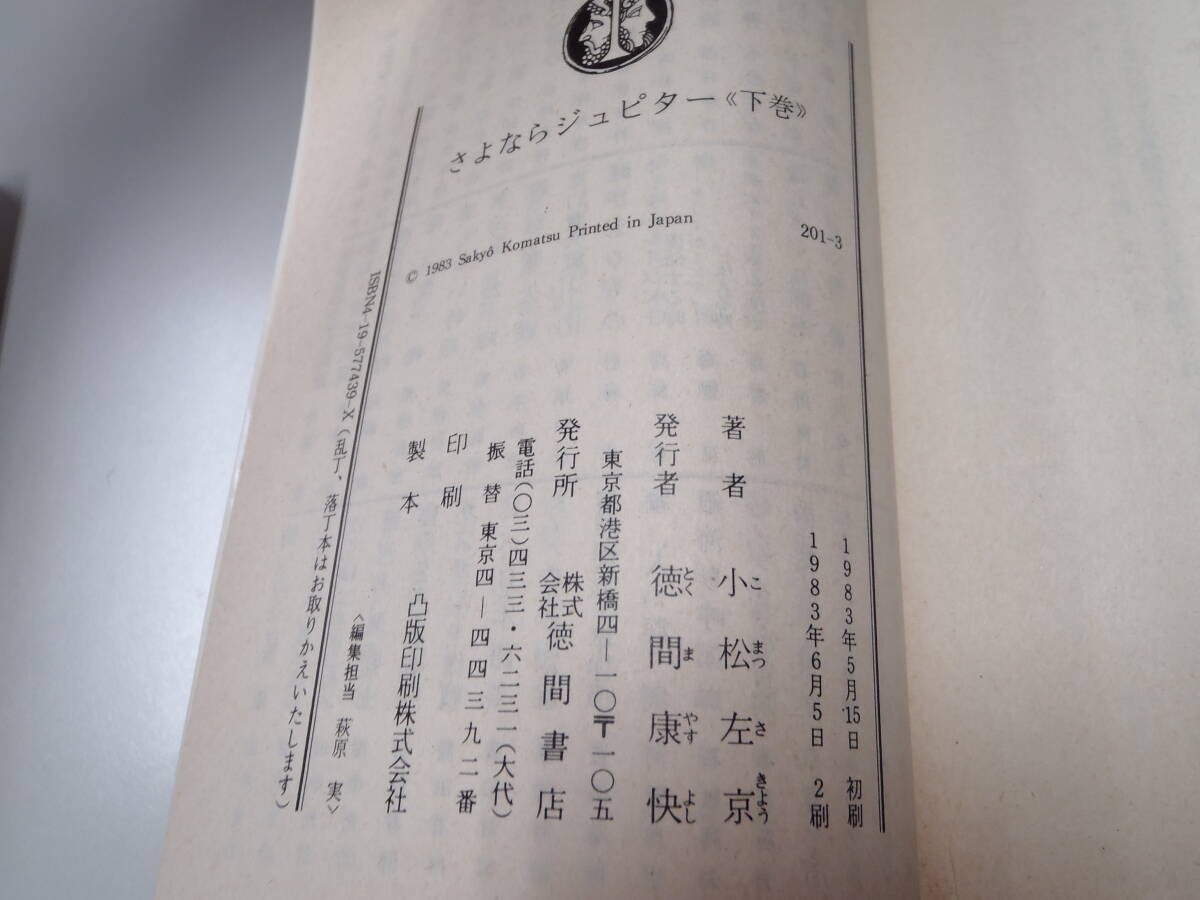 さよならジュピター《下巻》
© 1983 Sakyô Komatsu Printed in Japan
201-3
1983年5月15日 初刷
1983年6月5日 2刷
著者 小松左京
こまつさきよう
発行者 徳間康快
とくまやすよし
東京都港区新橋四―一〇〒一〇五
発行所 株式会社徳間書店
電話(〇三)四三三・六二三一(大代)
振替 東京四―四四三九二番
印刷
製本 凸版印刷株式会社
〈編集担当 萩原 実〉
ISBN4-19-577439-X (乱丁、落丁本はお取りかえいたします)